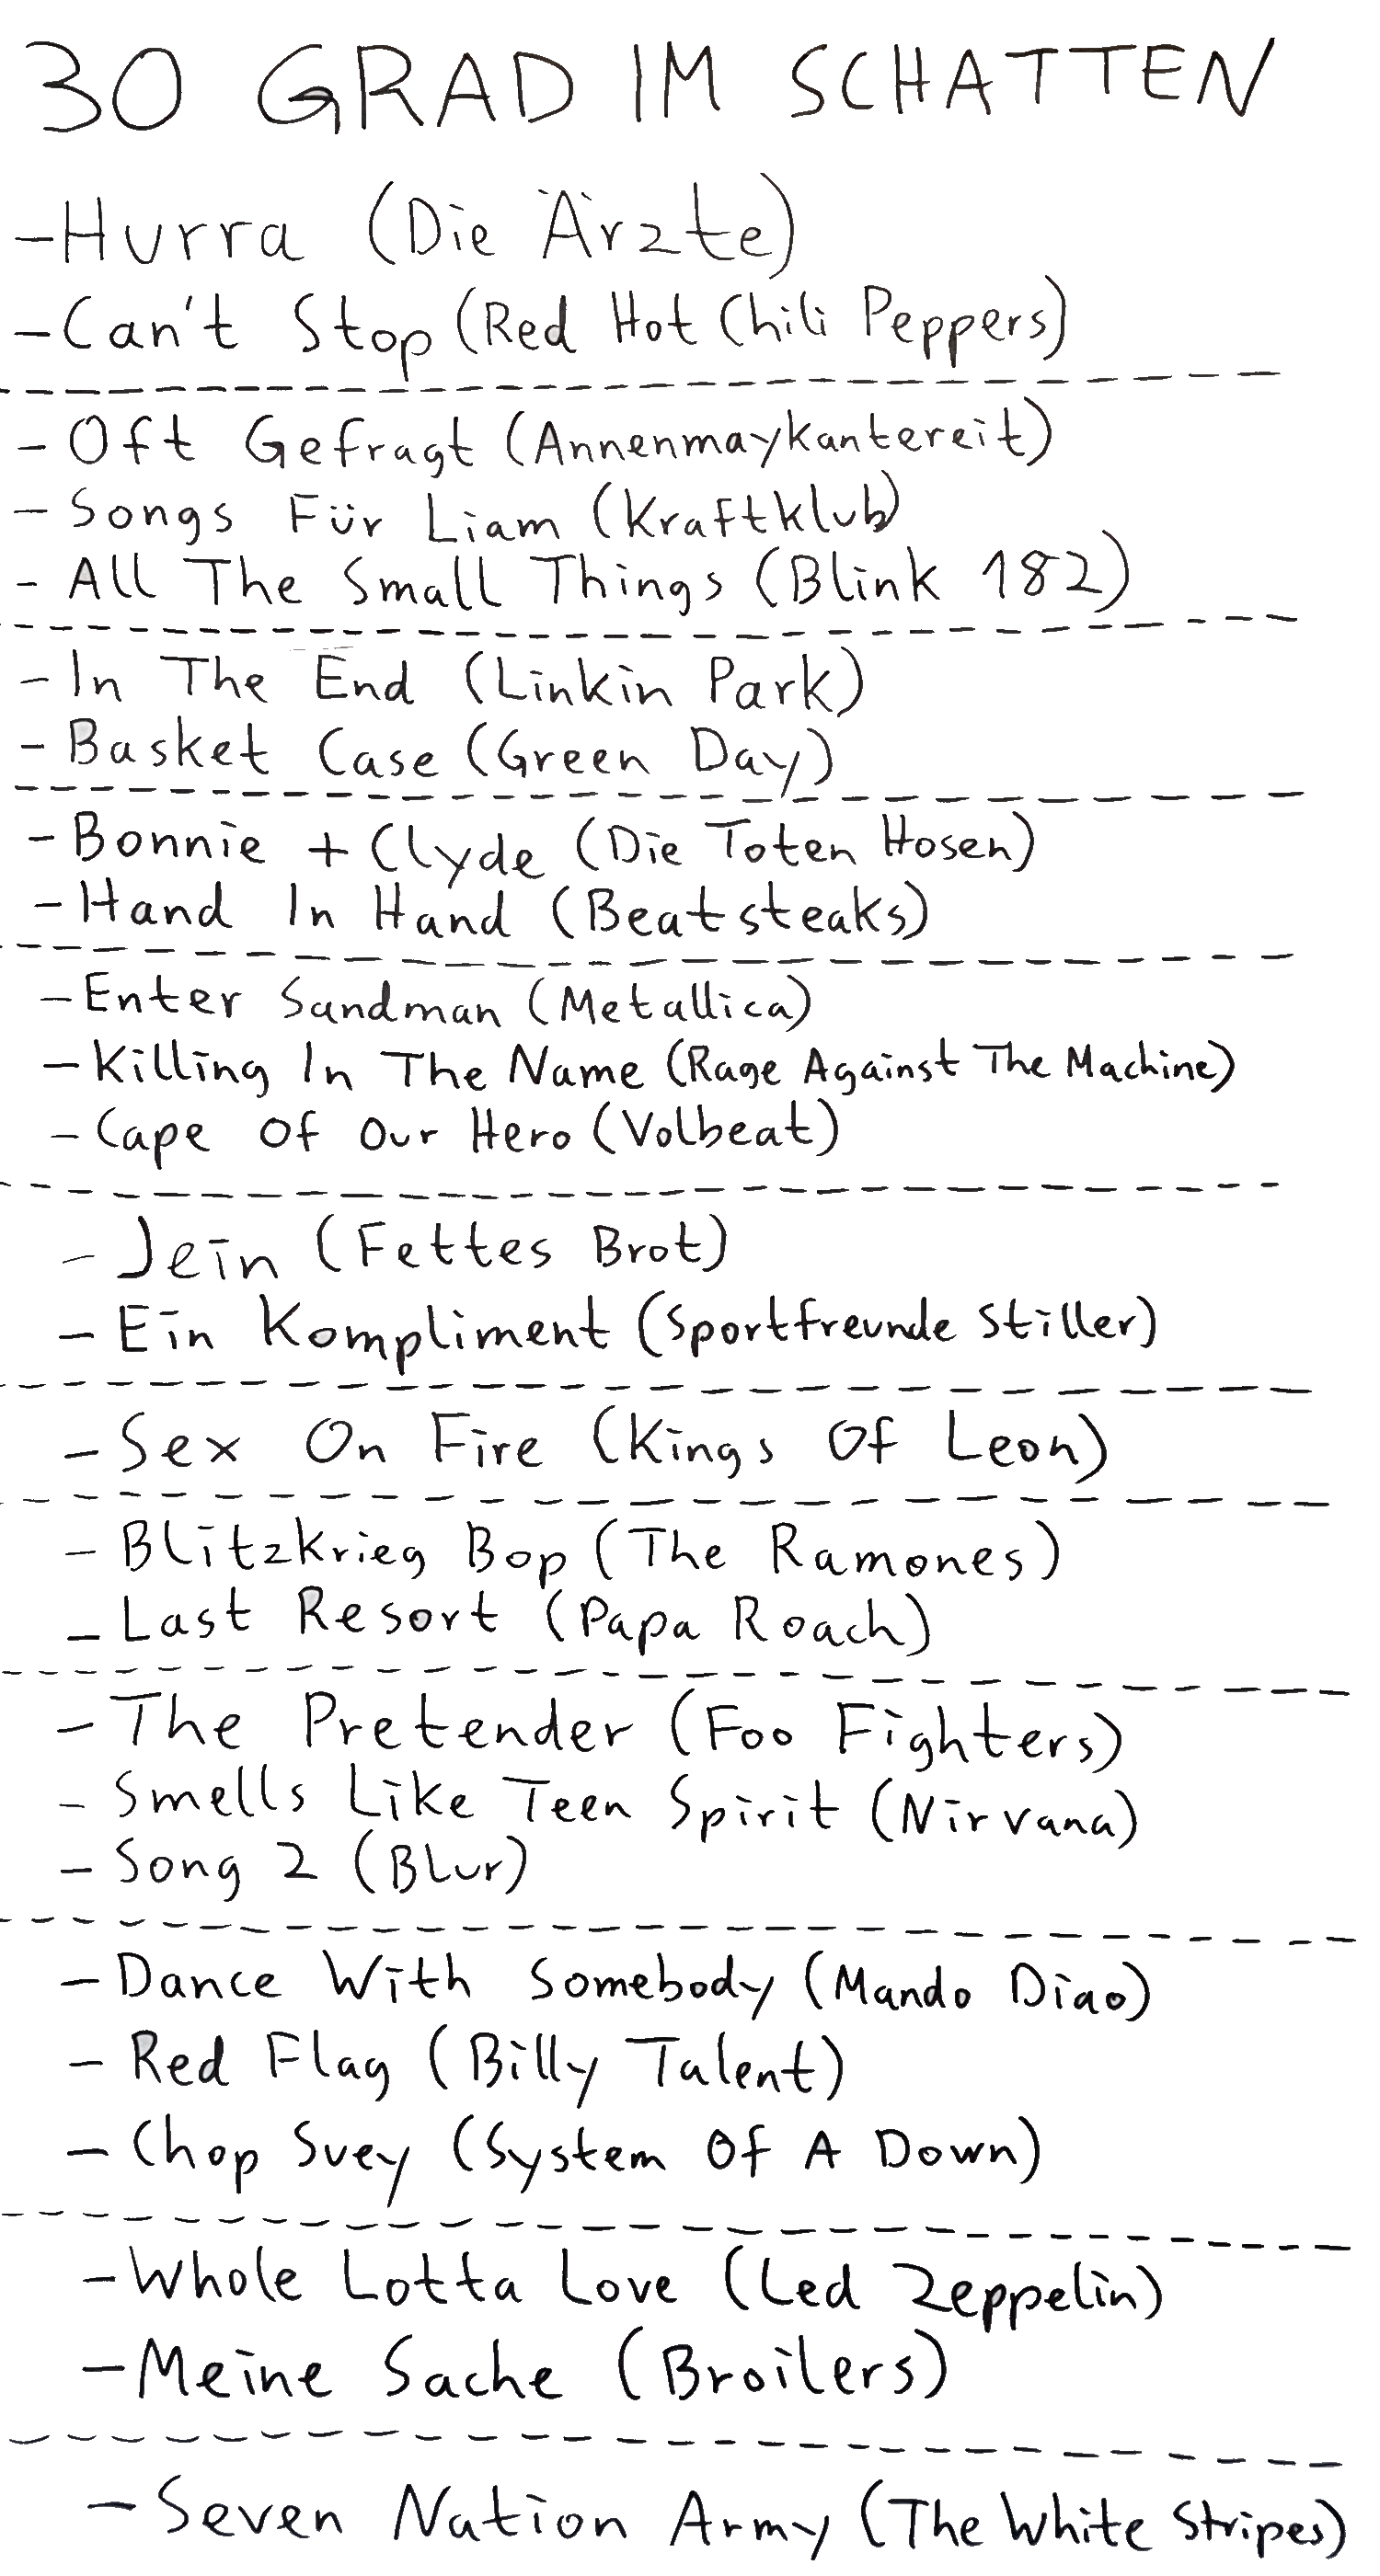 30 GRAD IM SCHATTEN
- Hurra (Die Ärzte)
- Can't Stop (Red Hot Chili Peppers)
- Oft Gefragt (Annenmaykantereit)
- Songs Für Liam (Kraftklub)
- All The Small Things (Blink 182)
- In The End (Linkin Park)
- Basket Case (Green Day)
- Bonnie + Clyde (Die Toten Hosen)
- Hand In Hand (Beatsteaks)
- Enter Sandman (Metallica)
- Killing In The Name (Rage Against The Machine)
- Cape Of Our Hero (Volbeat)
- Jein (Fettes Brot)
- Ein Kompliment (Sportfreunde Stiller)
- Sex On Fire (Kings Of Leon)
- Blitzkrieg Bop (The Ramones)
- Last Resort (Papa Roach)
- The Pretender (Foo Fighters)
- Smells Like Teen Spirit (Nirvana)
- Song 2 (Blur)
- Dance With Somebody (Mando Diao)
- Red Flag (Billy Talent)
- Chop Suey (System Of A Down)
- Whole Lotta Love (Led Zeppelin)
- Meine Sache (Broilers)
- Seven Nation Army (The White Stripes)